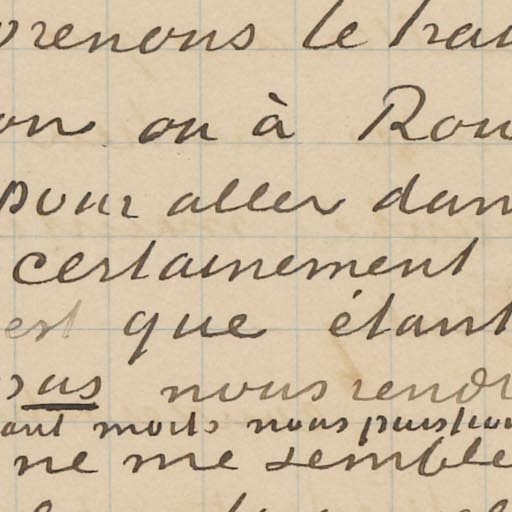 prenons le trai
on ou à Rou
pour aller dan
certainement
est que étant
as nous rend
ant morts nous puission
ne me semble